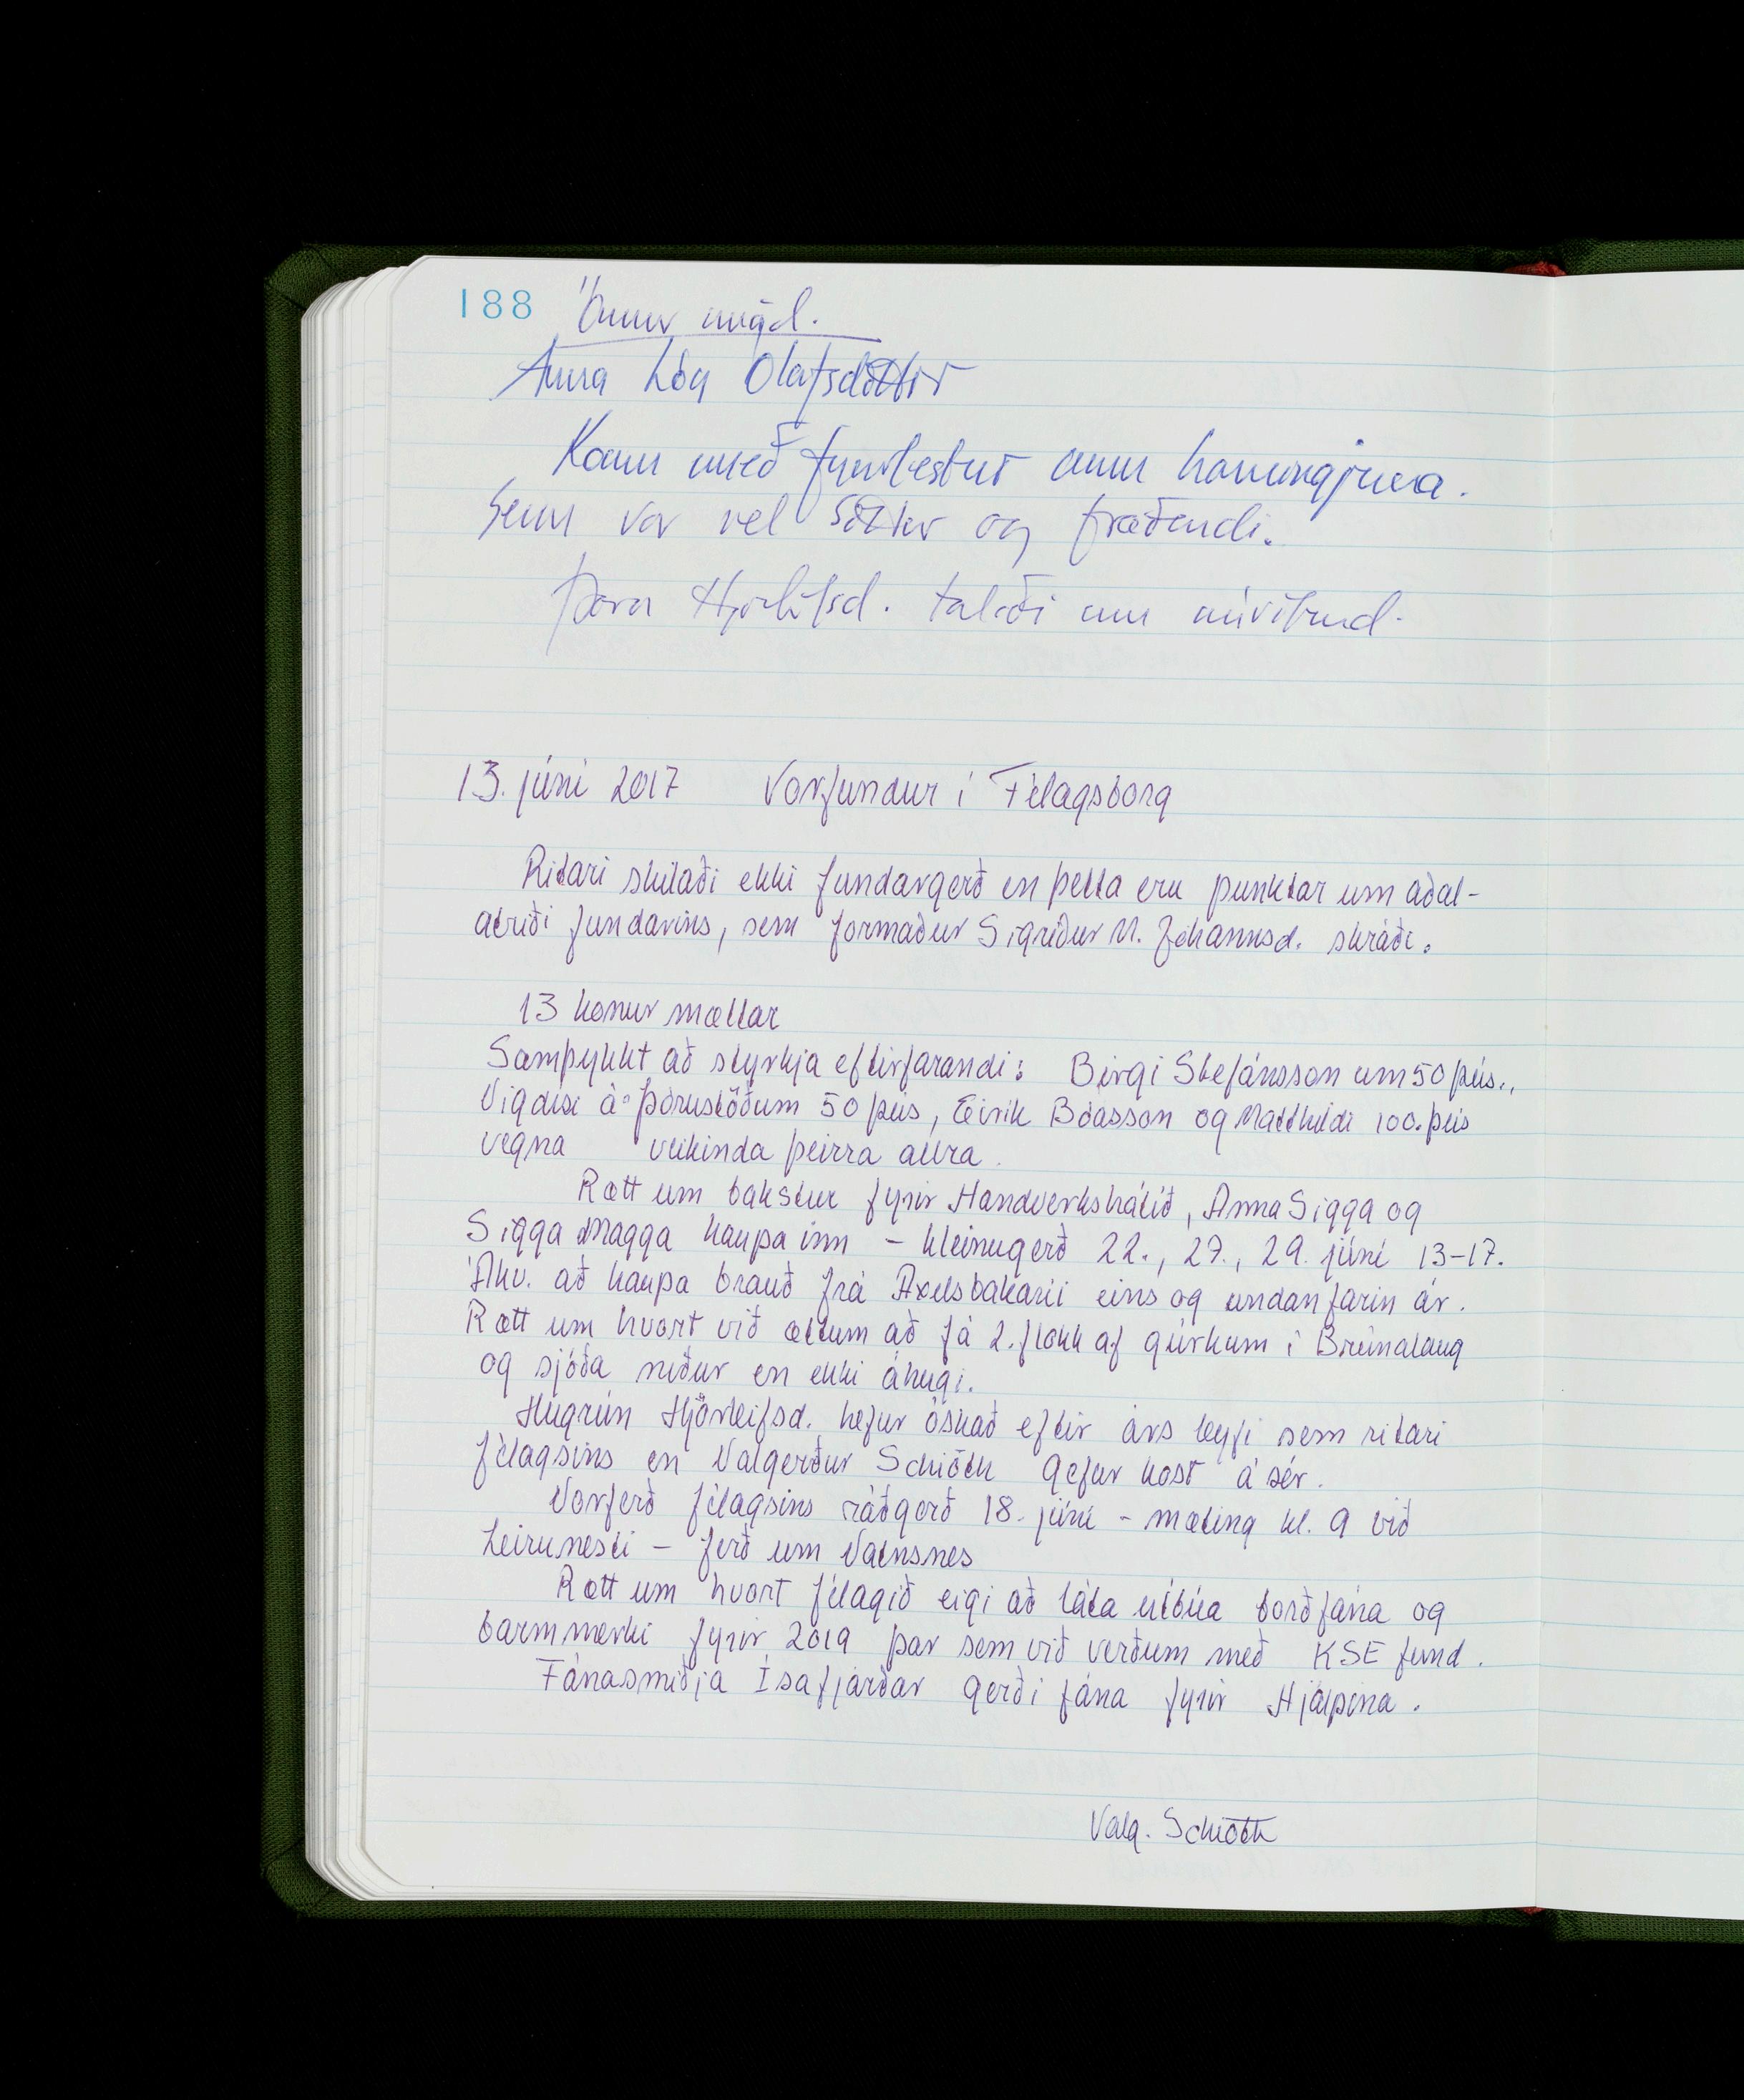 188 Önnur mál.
Anna Lóa Ólafsdóttir
Kom með fyrirlestur um hamingjuna.
Sem var vel sóttur og fræðandi.
Þóra Hjörleifsd. talaði um núvitund.
13. júní 2017 Vorfundur í Félagsborg
Ritari skilaði ekki fundargerð en þetta eru punktar um aðal-
atriði fundarins, sem formaður Sigríður M. Jóhannsd. skráði.
13 konur mættar
Samþykkt að styrkja eftirfarandi: Birgi Stefánsson um 50 þús.,
Vigdísi á Þórustöðum 50 þús, Eirík Bóasson og Matthildi 100. þús
vegna veikinda þeirra allra.
Rætt um bakstur fyrir Handverkshátíð, Anna Sigga og
Sigga Magga kaupa inn - kleinugerð 22., 27., 29. júní 13-17.
Ákv. að kaupa brauð frá Axelsbakaríi eins og undanfarin ár.
Rætt um hvort við ættum að fá 2. flokk af gúrkum í Brúnalaug
og sjóða niður en ekki áhugi.
Hugrún Hjörleifsd. hefur óskað eftir árs leyfi sem ritari
félagsins en Valgerður Schiöth gefur kost á sér.
Vorferð félagsins ráðgerð 18. júní - mæting kl. 9 við
Leirunesti - ferð um Vatnsnes
Rætt um hvort félagið eigi að láta útbúa borðfána og
barmmerki fyrir 2019 þar sem við verðum með KSE fund.
Fánasmiðja Ísafjarðar gerði fána fyrir Hjálpina.
Valg. Schiöth